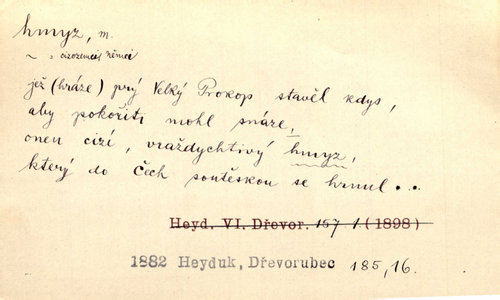 hmyz, m.
~ = cizozemci, němci
jež (hráze) prý Velký Prokop stavěl kdys,
aby pokořiti mohl snáze,
onen cizí, vraždychtivý hmyz,
který do Čech soutěskou se hrnul...
Heyd. VI. Dřevor. 157 1. (1898)
1882 Heyduk, Dřevorubec 185,16.